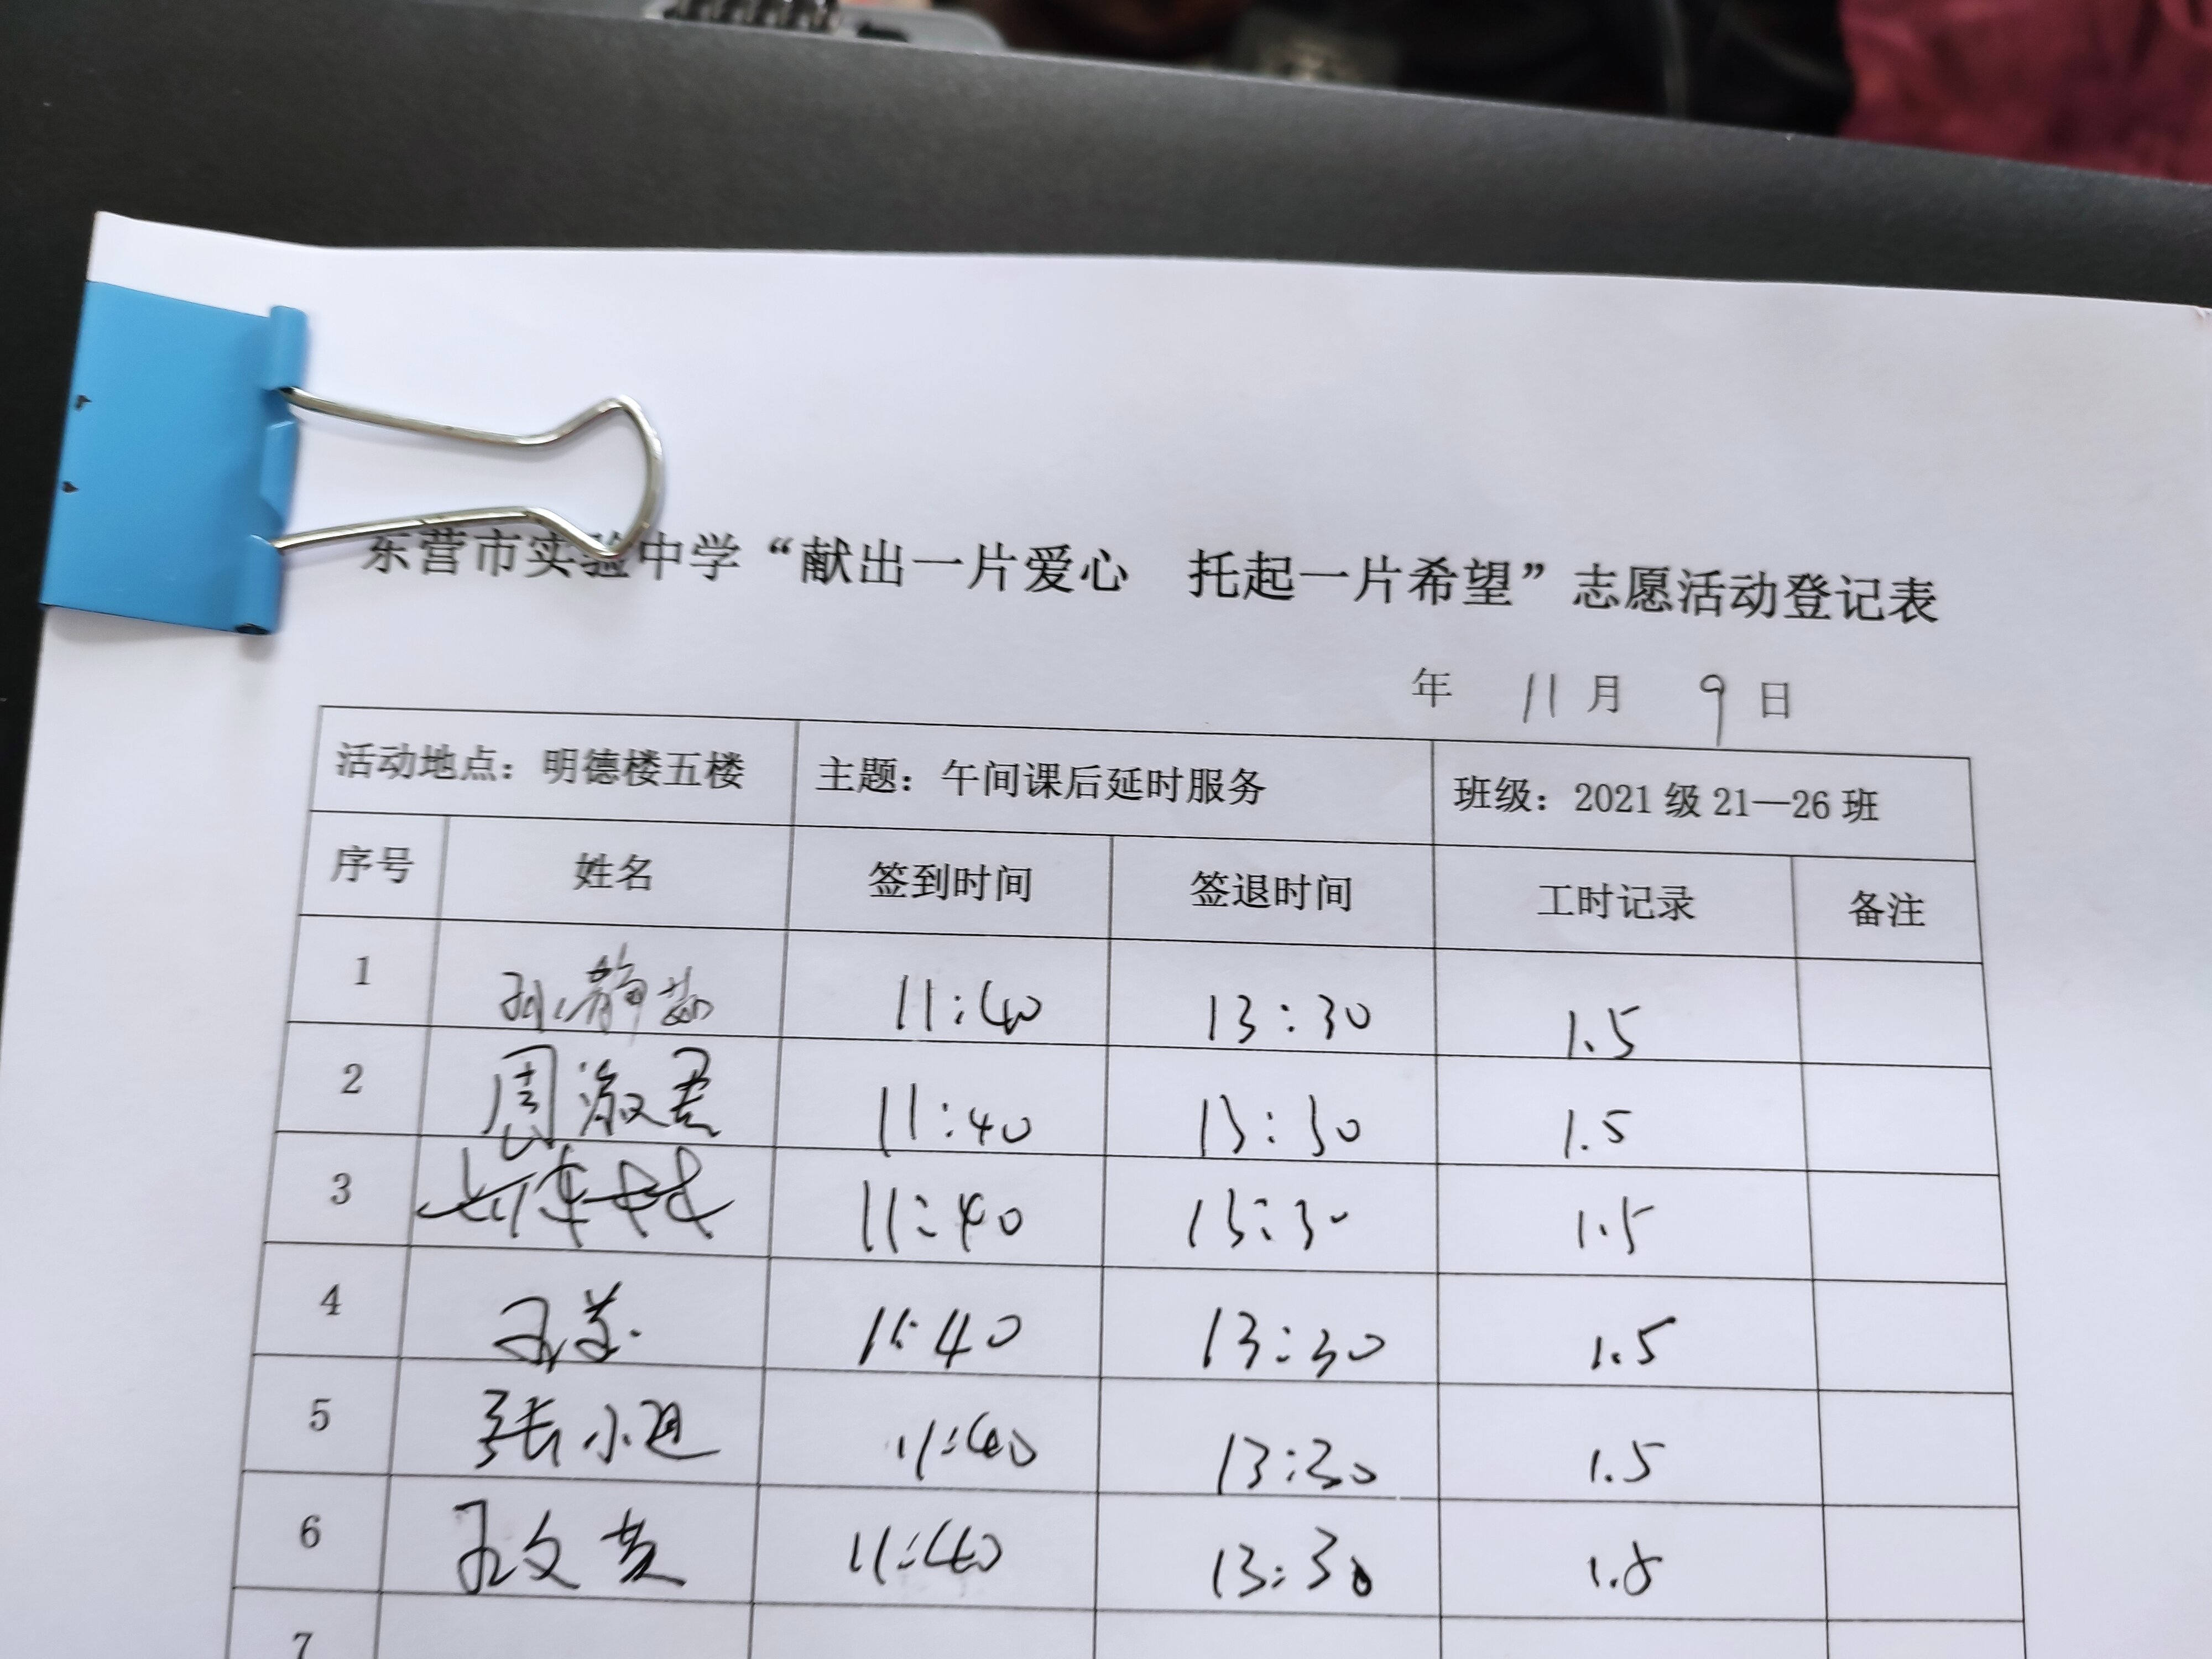 东营市实验中学“献出一片爱心 托起一片希望”志愿活动登记表
年 11月 9日
活动地点：明德楼五楼 主题：午间课后延时服务 班级：2021级21—26班
序号 姓名 签到时间 签退时间 工时记录 备注
1 孙静茹 11:40 13:30 1.5
2 周淑君 11:40 13:30 1.5
3 11:40 13:30 1.5
4 11:40 13:30 1.5
5 张小迪 11:40 13:30 1.5
6 11:40 13:30 1.5
7